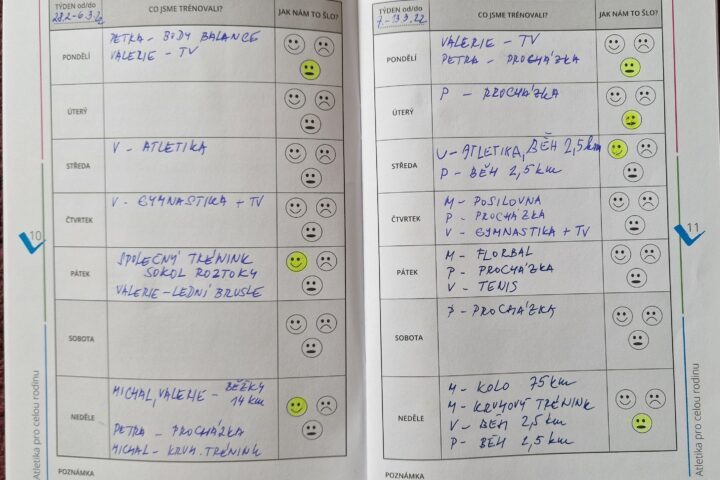 TÝDEN od/do
28.2.-6.3.22
CO JSME TRÉNOVALI?
JAK NÁM TO ŠLO?
PONDĚLÍ
PETRA - BODY BALANCE
VALERIE - TV
ÚTERÝ
STŘEDA
V - ATLETIKA
ČTVRTEK
V - GYMNASTIKA + TV
PÁTEK
SPOLEČNÝ TRÉNINK
SOKOL ROZTOKY
VALERIE - LEDNÍ BRUSLE
SOBOTA
NEDĚLE
MICHAL, VALERIE - BĚŽKY
14 km
PETRA - PROCHÁZKA
MICHAL - KRUH. TRÉNINK
POZNÁMKA
10
Atletika pro celou rodinu
TÝDEN od/do
7.-13.3.22
CO JSME TRÉNOVALI?
JAK NÁM TO ŠLO?
PONDĚLÍ
VALERIE - TV
PETRA - PROCHÁZKA
ÚTERÝ
P - PROCHÁZKA
STŘEDA
V - ATLETIKA, BĚH 2,5 km
P - BĚH 2,5 km
ČTVRTEK
M - POSILOVNA
P - PROCHÁZKA
V - GYMNASTIKA + TV
PÁTEK
M - FLORBAL
P - PROCHÁZKA
V - TENIS
SOBOTA
P - PROCHÁZKA
NEDĚLE
M - KOLO 75 km
M - KRUHOVÝ TRÉNINK
V - BĚH 2,5 km
P - BĚH 2,5 km
POZNÁMKA
11
Atletika pro celou rodinu